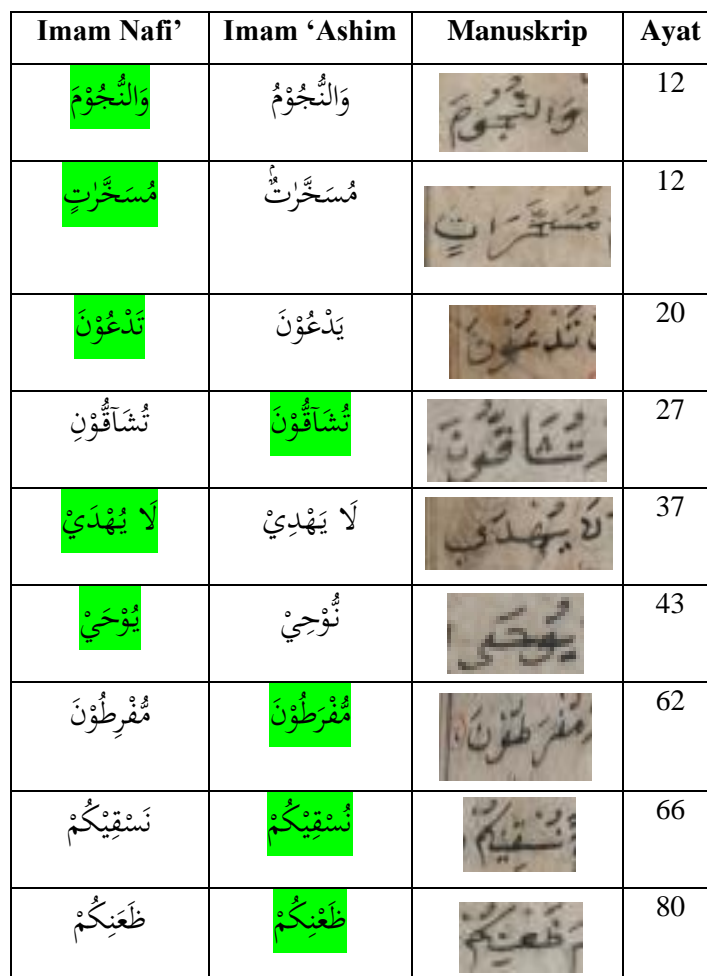 Imam Nafi’ Imam ‘Ashim Manuskrip Ayat
وَالنُّجُوْمَ وَالنُّجُوْمُ وَالنُّجُومَ 12
مُسَخَّرٰتٍ مُسَخَّرٰتٌۢ مُسَخَّرَاتٍ 12
تَدْعُوْنَ يَدْعُوْنَ تَدْعُوْنَ 20
تُشَآقُّوْنِ تُشَآقُّوْنَ تُشَاقُّونَ 27
لَا يُهْدَيْ لَا يَهْدِيْ لَا يُهْدَي 37
يُوْحَيْ نُّوْحِيْ يُوْحَى 43
مُّفْرِطُوْنَ مُّفْرَطُوْنَ مُفْرَطُوْنَ 62
نَسْقِيْكُمْ نُسْقِيْكُمْ نُسْقِيْكُمْ 66
ظَعَنِكُمْ ظَعْنِكُمْ ظَعْنِكُمْ 80